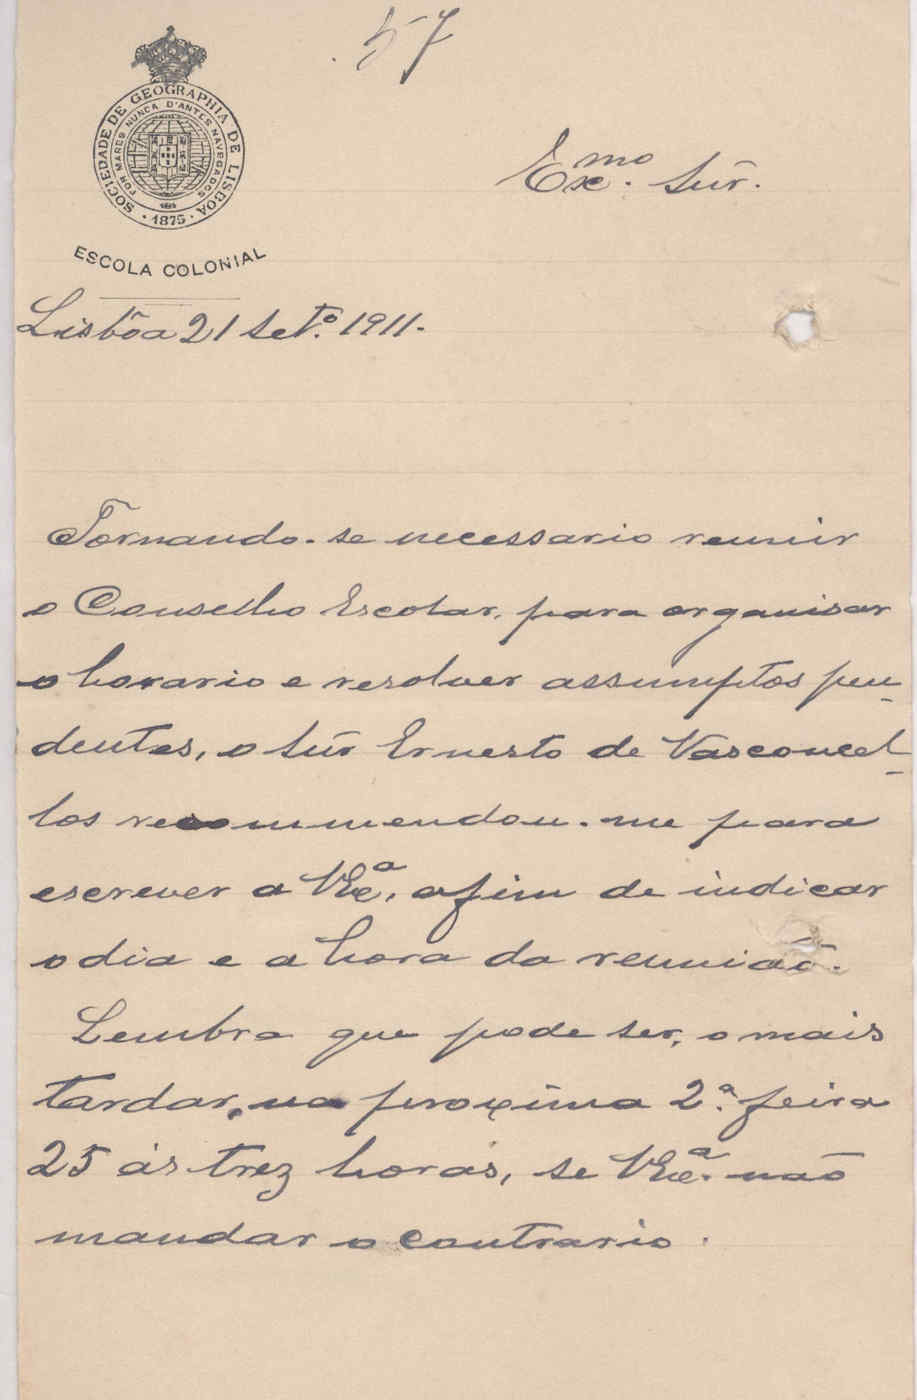 57
SOCIEDADE DE GEOGRAPHIA DE LISBOA
POR MARES NUNCA D'ANTES NAVEGADOS
· 1875 ·
ESCOLA COLONIAL
Exmo. Snr.
Lisbôa 21 Set.º 1911.
Tornando-se necessario reunir
o Conselho Escolar, para organisar
o horario e resolver assumptos pen-
dentes, o Snr Ernesto de Vasconcel-
los recommendou-me para
escrever a VExa, afim de indicar
o dia e a hora da reunião.
Lembra que pode ser, o mais
tardar, na proxima 2.ª feira
25 ás trez horas, se VExª. não
mandar o contrario.